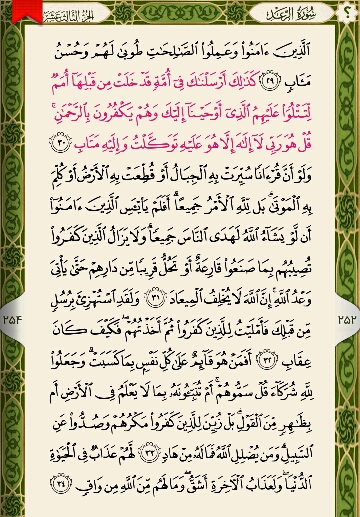 الجزء الثالث عشر
سورة الرعد
الَّذِينَ ءَامَنُوا وَعَمِلُوا الصَّالِحَاتِ طُوبَىٰ لَهُمْ وَحُسْنُ
مَـَٔابٍ ﴿٢٩﴾ كَذَٰلِكَ أَرْسَلْنَاكَ فِي أُمَّةٍ قَدْ خَلَتْ مِن قَبْلِهَا أُمَمٌ
لِّتَتْلُوَا عَلَيْهِمُ الَّذِي أَوْحَيْنَا إِلَيْكَ وَهُمْ يَكْفُرُونَ بِالرَّحْمَٰنِ ۚ
قُلْ هُوَ رَبِّي لَا إِلَٰهَ إِلَّا هُوَ عَلَيْهِ تَوَكَّلْتُ وَإِلَيْهِ مَتَابِ ﴿٣٠﴾
وَلَوْ أَنَّ قُرْءَانًا سُيِّرَتْ بِهِ الْجِبَالُ أَوْ قُطِّعَتْ بِهِ الْأَرْضُ أَوْ كُلِّمَ
بِهِ الْمَوْتَىٰ ۗ بَل لِّلَّهِ الْأَمْرُ جَمِيعًا ۗ أَفَلَمْ يَا۟يْـَٔسِ الَّذِينَ ءَامَنُوا
أَن لَّوْ يَشَاءُ اللَّهُ لَهَدَى النَّاسَ جَمِيعًا ۗ وَلَا يَزَالُ الَّذِينَ كَفَرُوا
تُصِيبُهُم بِمَا صَنَعُوا قَارِعَةٌ أَوْ تَحُلُّ قَرِيبًا مِّن دَارِهِمْ حَتَّىٰ يَأْتِيَ
وَعْدُ اللَّهِ ۚ إِنَّ اللَّهَ لَا يُخْلِفُ الْمِيعَادَ ﴿٣١﴾ وَلَقَدِ اسْتُهْزِئَ بِرُسُلٍ
مِّن قَبْلِكَ فَأَمْلَيْتُ لِلَّذِينَ كَفَرُوا ثُمَّ أَخَذْتُهُمْ ۖ فَكَيْفَ كَانَ
عِقَابِ ﴿٣٢﴾ أَفَمَنْ هُوَ قَائِمٌ عَلَىٰ كُلِّ نَفْسٍ بِمَا كَسَبَتْ ۗ وَجَعَلُوا
لِلَّهِ شُرَكَاءَ قُلْ سَمُّوهُمْ ۚ أَمْ تُنَبِّـُٔونَهُ بِمَا لَا يَعْلَمُ فِي الْأَرْضِ أَم
بِظَاهِرٍ مِّنَ الْقَوْلِ ۗ بَلْ زُيِّنَ لِلَّذِينَ كَفَرُوا مَكْرُهُمْ وَصُدُّوا عَنِ
السَّبِيلِ ۗ وَمَن يُضْلِلِ اللَّهُ فَمَا لَهُ مِنْ هَادٍ ﴿٣٣﴾ لَّهُمْ عَذَابٌ فِي الْحَيَوٰةِ
الدُّنْيَا ۖ وَلَعَذَابُ الْآخِرَةِ أَشَقُّ ۖ وَمَا لَهُم مِّنَ اللَّهِ مِن وَاقٍ ﴿٣٤﴾
٢٥٢
٢٥٤
؟